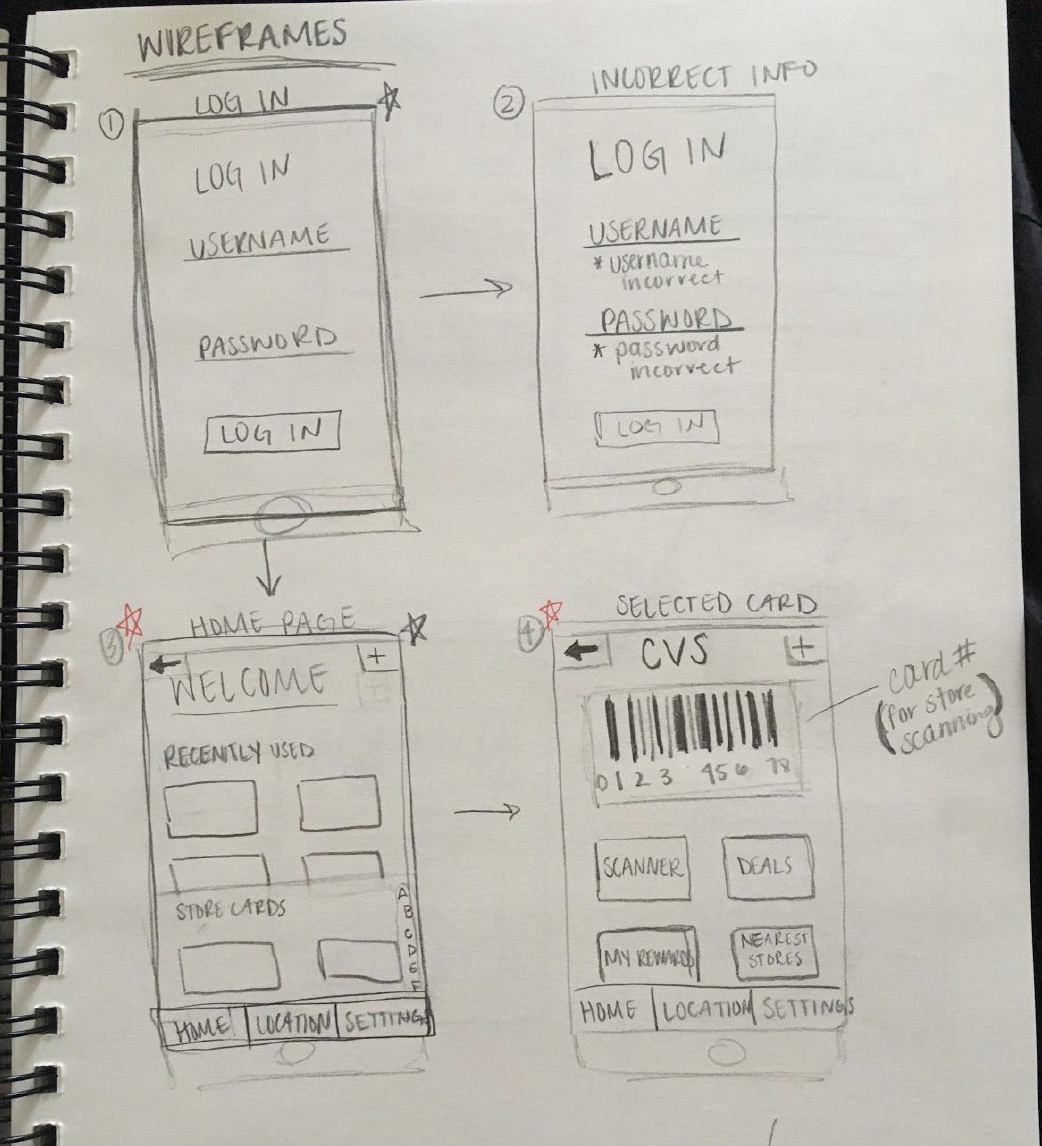 WIREFRAMES
① LOG IN
LOG IN
USERNAME
PASSWORD
LOG IN
② INCORRECT INFO
LOG IN
USERNAME
* username
incorrect
PASSWORD
* password
incorrect
LOG IN
③ HOME PAGE
+
WELCOME
RECENTLY USED
STORE CARDS
A
B
C
D
E
F
HOME LOCATION SETTINGS
④ SELECTED CARD
CVS +
0123 456 78
card #
(for store
scanning)
SCANNER DEALS
MY REWARDS NEAREST
STORES
HOME LOCATION SETTINGS